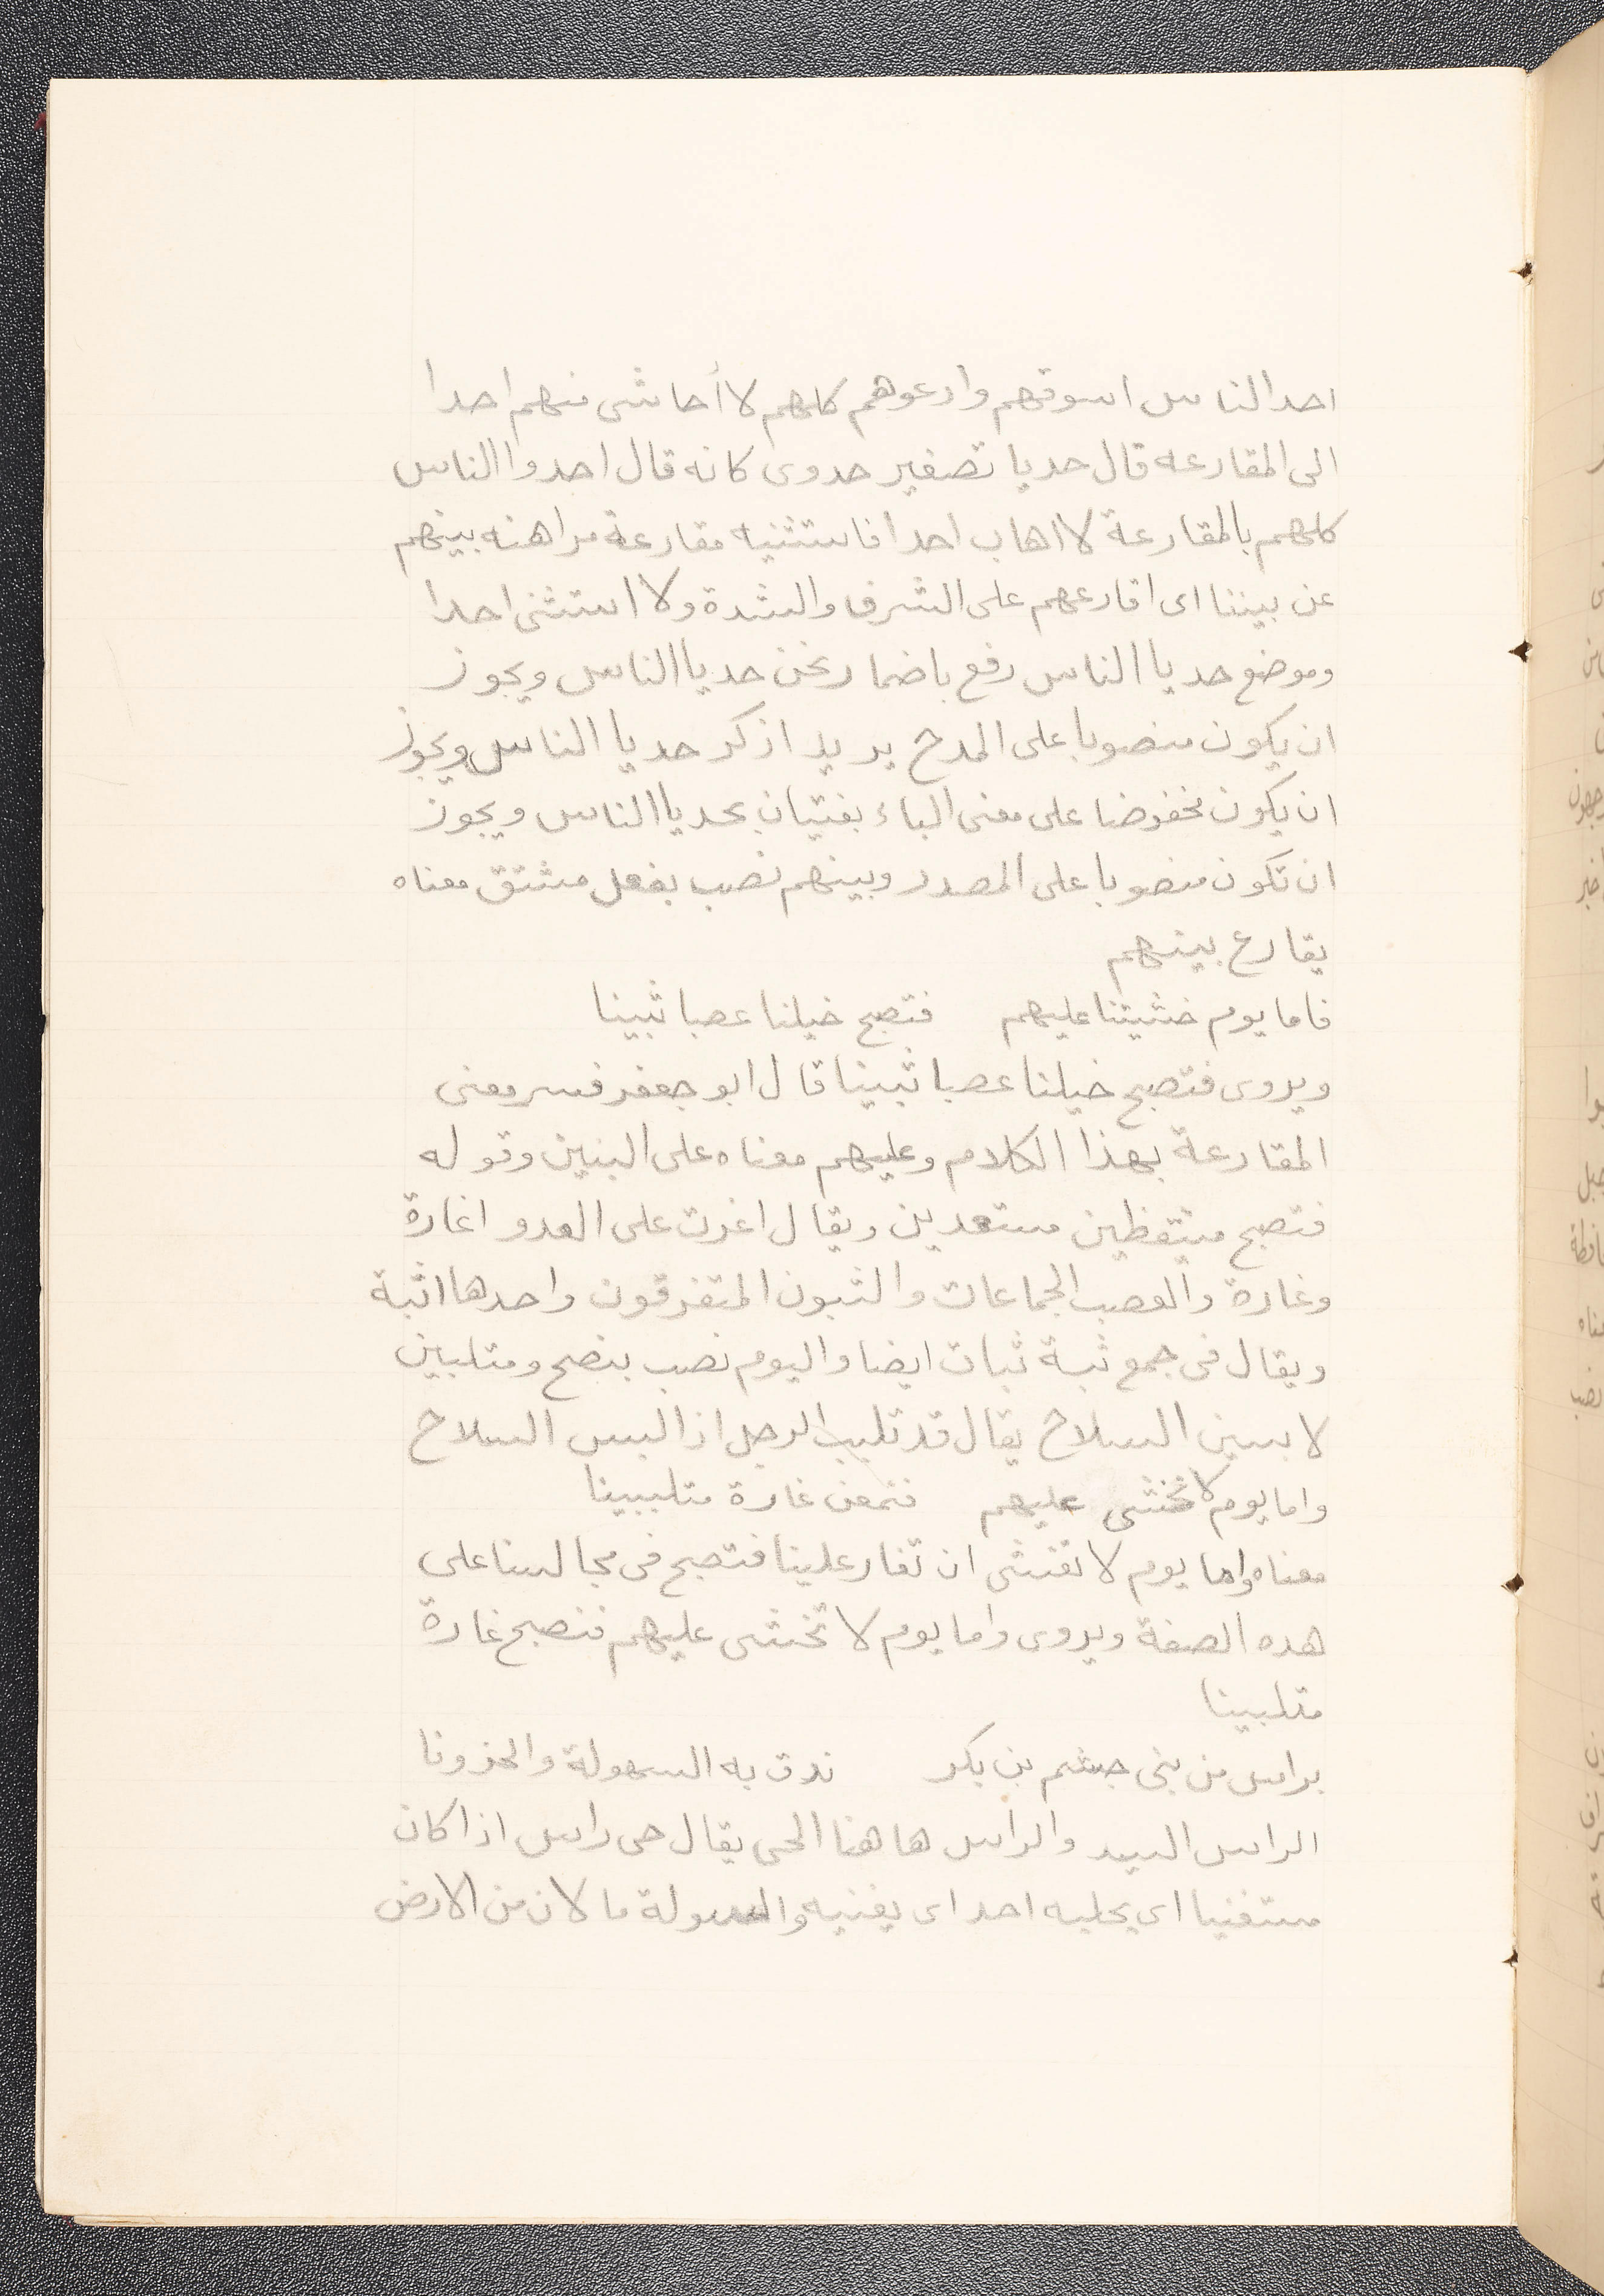 احد الناس اسوقهم وادعوهم كلهم لا أحاشى منهم احدا
الى المقارعه قال حديا تصغير حدوى كانه قال احدوا الناس
كلهم بالمقارعة لا اهاب احدا فاستثنيه مقارعة مراهنه بينهم
عن بيننا اى اقارعهم على الشرف والشدة ولا استثنى احدا
وموضع حديا الناس رفع باضمار نحن حديا الناس ويجوز
ان يكون منصوبا على المدح يريد اذكر حديا الناس ويجوز
ان يكون مخفوضا على معنى الباء بفتيان بحديا الناس ويجوز
ان تكون منصوبا على المصدر وبينهم نصب بفعل مشتق معناه
يقارع بينهم
فاما يوم خشيتنا عليهم فتصبح خيلنا عصبا ثبينا
ويروى فتصبح خيلنا عصبا ثبينا قال ابو جعفر فسر معنى
المقارعة بهذا الكلام وعليهم معناه على البنين وقوله
فتصبح متيقظين مستعدين ويقال اغرت على العدو اغارة
وغارة والعصب الجماعات والثبون المتفرقون واحدها اثبة
ويقال فى جمع ثبة ثبات ايضا واليوم نصب بنصح ومتلبين
لابسين السلاح يقال قد تلبب الرجل اذا لبس السلاح
واما يوم لا نخشى عليهم فنمعن غارة متلببينا
معناه واما يوم لا تقشى ان تغار علينا فتصبح فى مجالسنا على
هده الصفة ويروى واما يوم لا تخشى عليهم فنصبح غارة
متلبينا
براس من بنى جشم بن بكر ندق به السهولة والحزونا
الراس السيد والراس هاهنا الحى يقال حى راس اذا كان
مستغنيا اى يحلبه احد اى يغنيه والسهولة ما لان من الارض